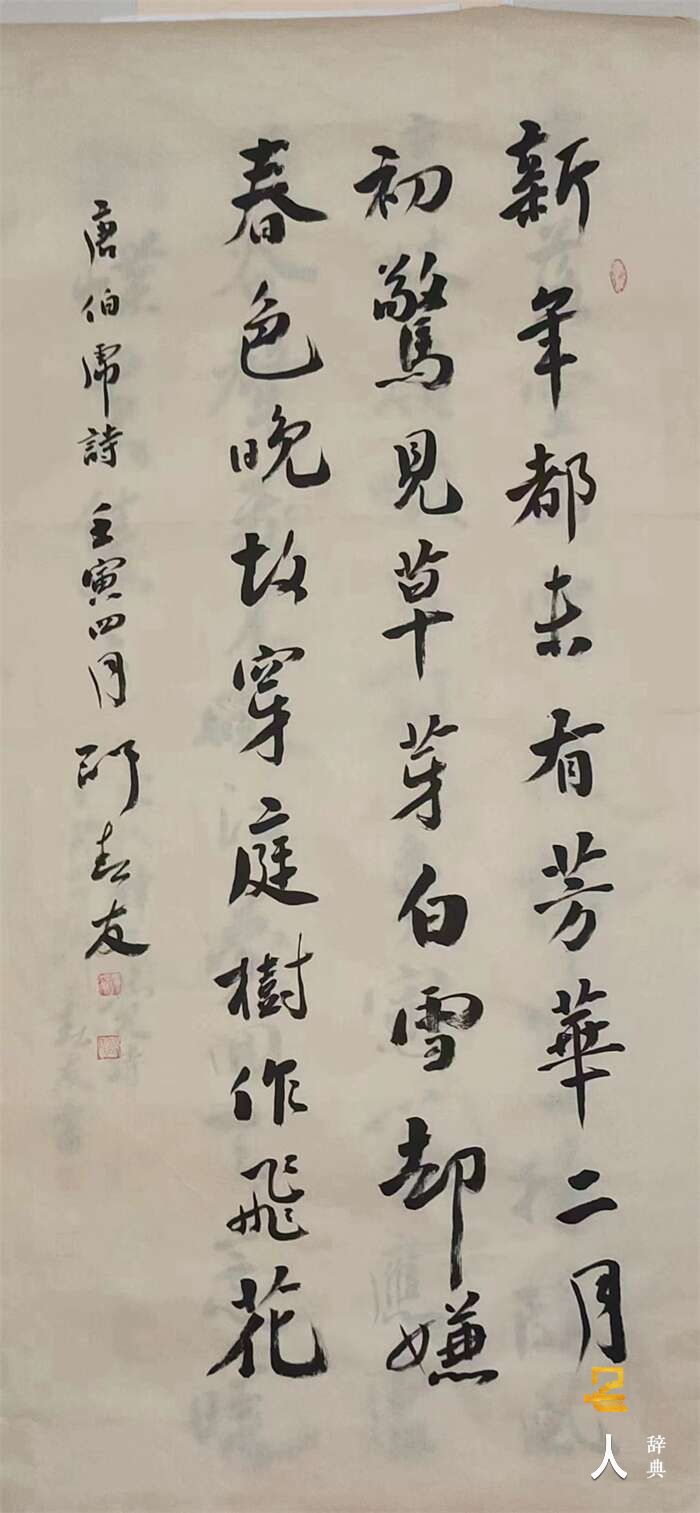 新年都未有芳華二月
初驚見草芽白雪却嫌
春色晚故穿庭樹作飛花
唐伯虎詩 壬寅四月 邱春友
人
辞典